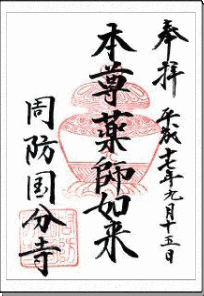 奉拝 平成十七年九月十五日
本尊薬師如来
周防国分寺